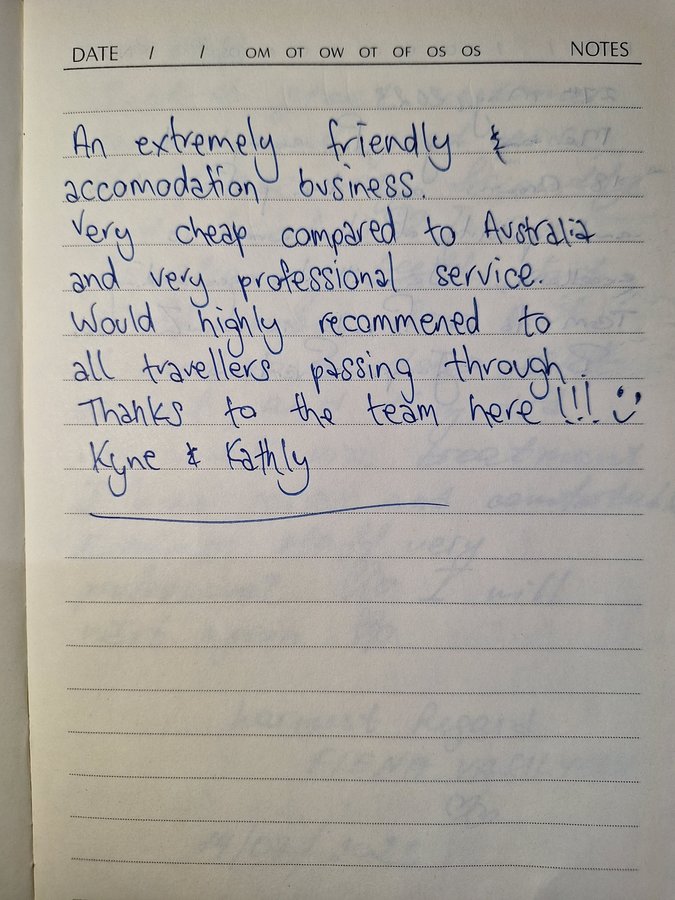 DATE / / OM OT OW OT OF OS OS NOTES
An extremely friendly &
accomodation business.
Very cheap compared to Australia
and very professional service.
Would highly recommened to
all travellers passing through.
Thanks to the team here !!!
Kyne & Kathly
very
I will